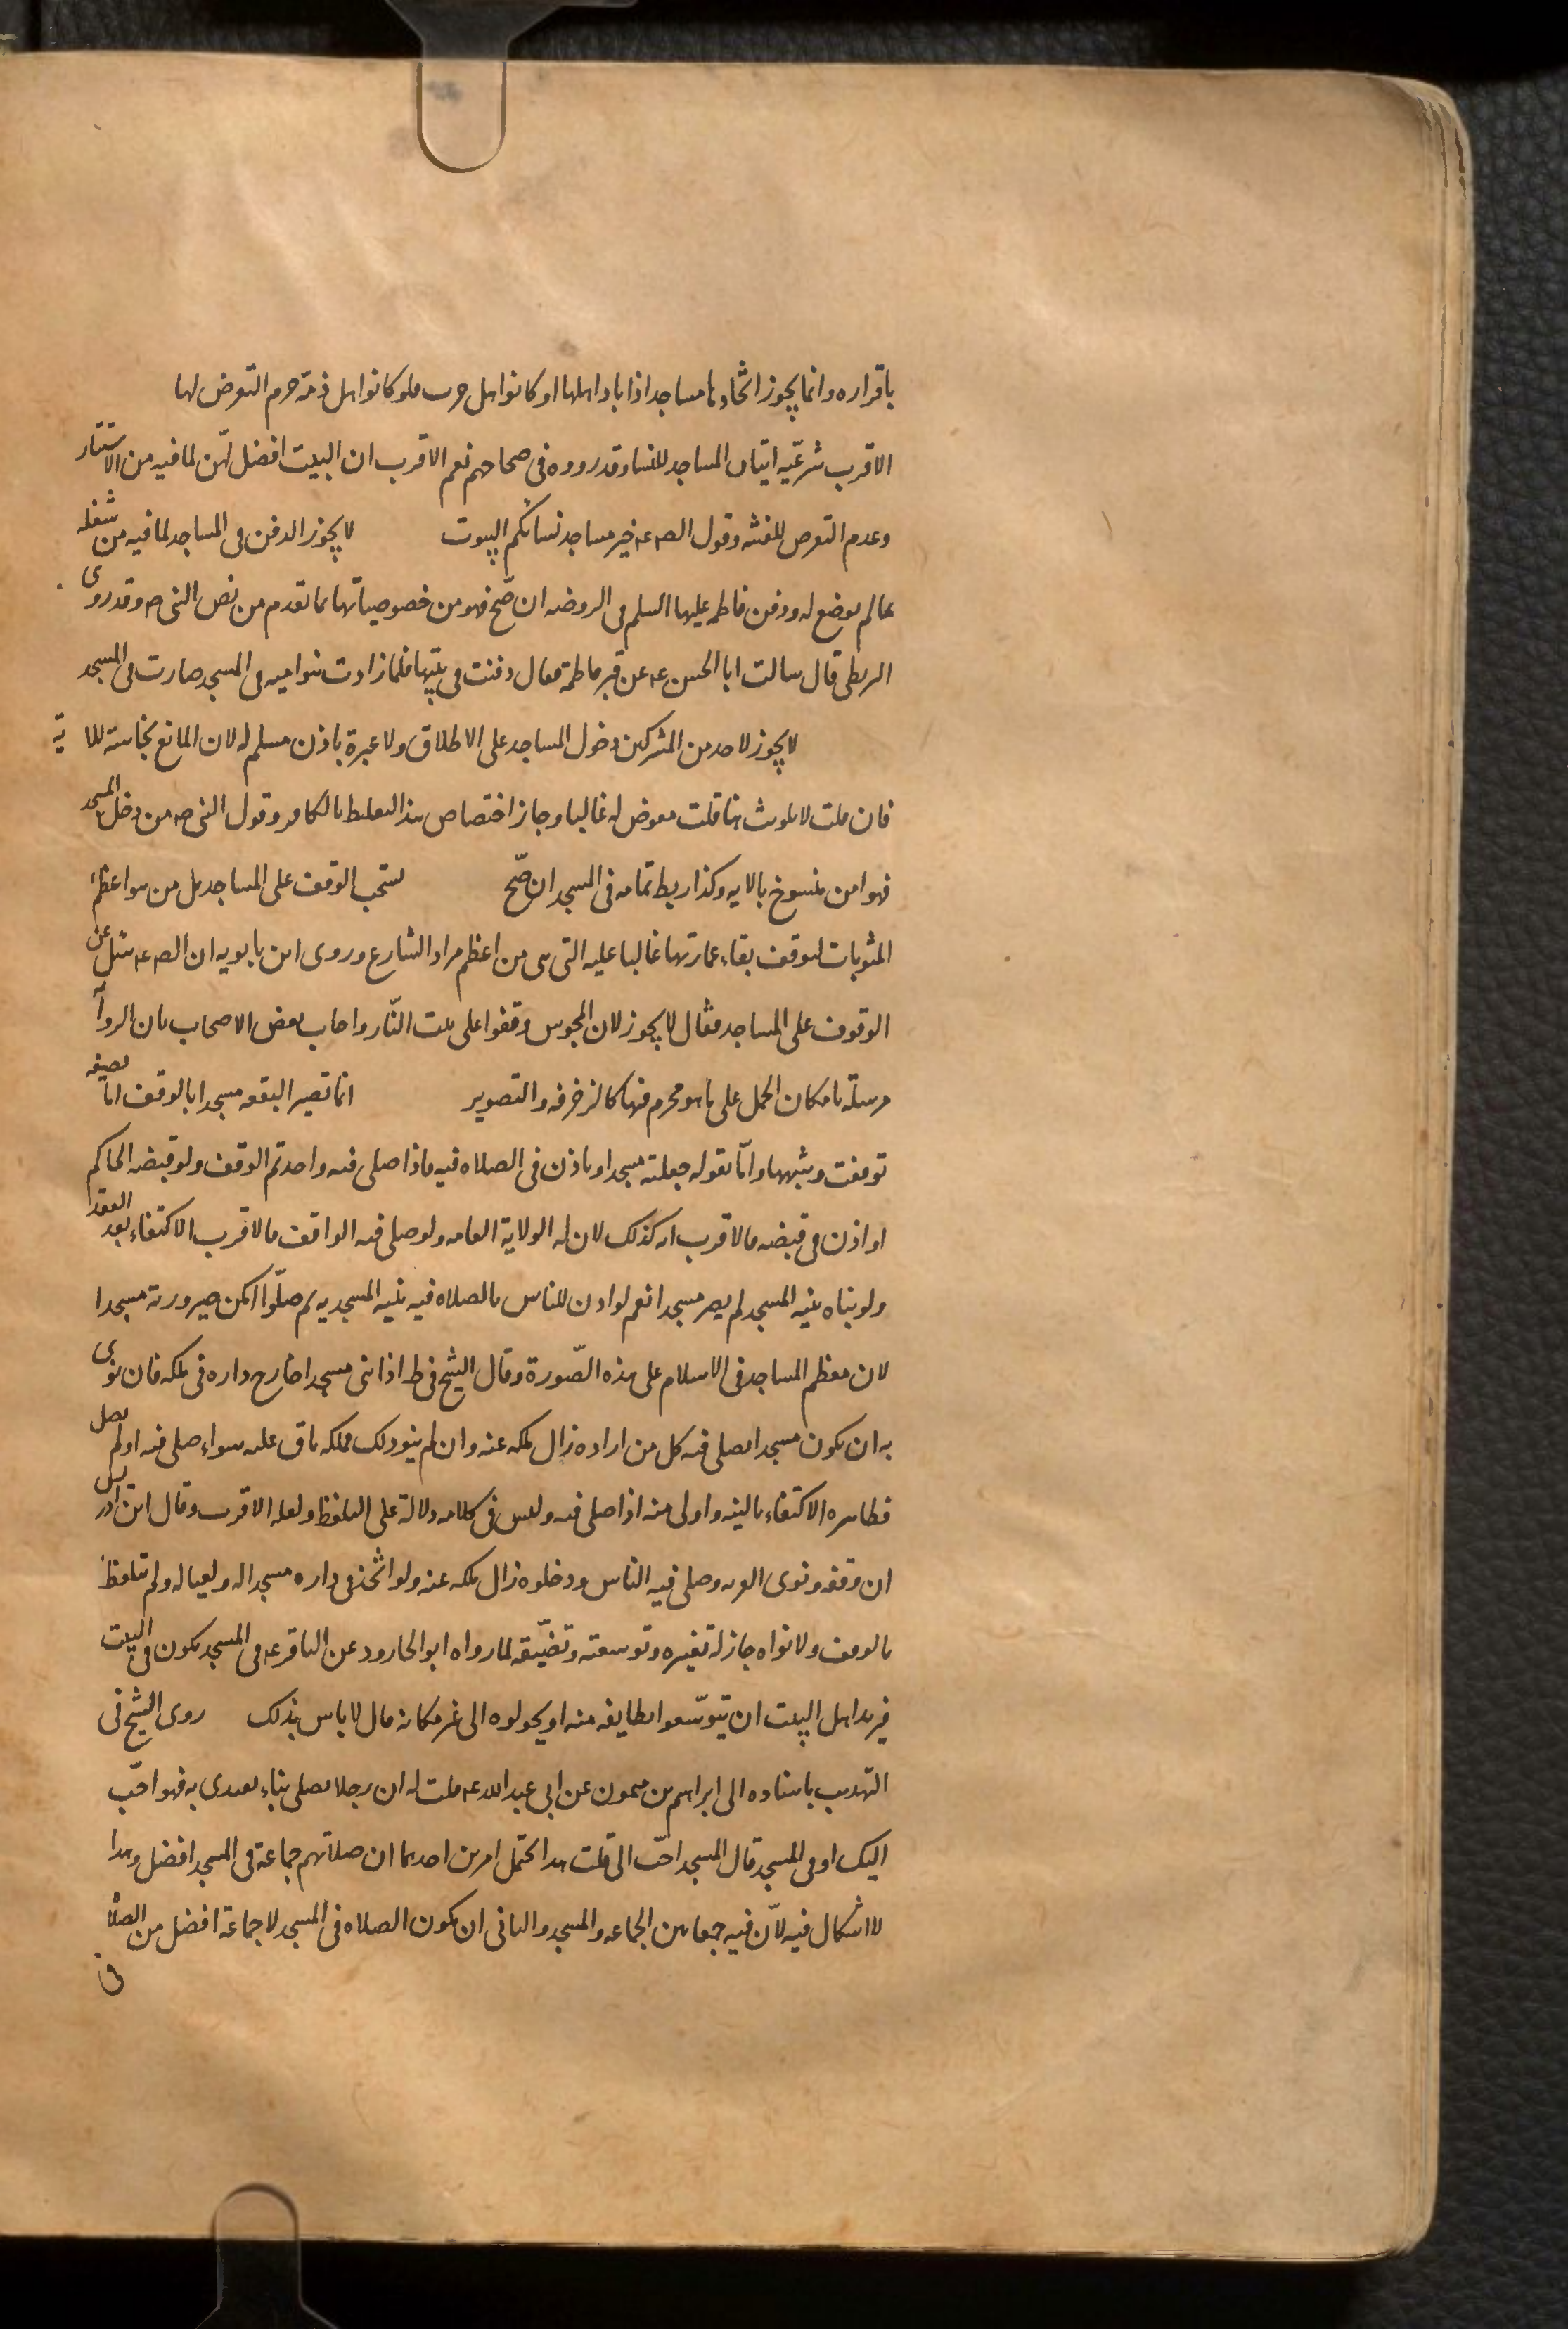 باقراره وانما يجوز اتخادها مساجد اذا باد اهلها او كانوا اهل حرب فلو كانوا اهل ذمة حرم التعرض لها
الاقرب شرعيّه اتيان المساجد للنسا وقد رووه فى صحاحهم نعم الاقرب ان البيت افضل لهّن لما فيه من الاستتار
وعدم التعرض للفتنه وقول الصه عه خير مساجد نسائكم البيوت لا يجوز الدفن فى المساجد لما فيه من شغله
عما لم يوضع له ودفن فاطمه عليها السلم فى الروضه ان صّح فهو من خصوصياتها بما تقدم من نص النبى ص وقد روى
البزنطى قال سالت ابا الحسن عه عن قبر فاطمة فقال دفنت فى بيتها فلما زادت بنو اميه فى المسجد صارت فى المسجد
لا يجوز لاحد من المشركين دخول المساجد على الاطلاق ولا عبرة باذن مسلم له لان المانع نجاسته للا ية
فان قلت لا تلوث هنا قلت معرض له غالبا وجاز اختصاص هذا التغليظ بالكافر وقول النبى ص من دخل المسجد
فهو امن منسوخ بالايه وكذا ربط ثمامه فى المسجد ان صّح يستحب الوقف على المساجد بل من هو اعظم
المثوبات لتوقف بقاء عمارتها غالبا عليه التى هى من اعظم مراد الشارع وروى ابن بابويه ان الصه عه سئل عن
الوقوف على المساجد فقال لا يجوز لان المجوس وقفوا على بيت النّار واجاب بعض الاصحاب بان الرواية
مرسلة بامكان الحمل على ما هو محرم فيها كالزخرفه والتصوير انما تصير البقعه مسجدا بالوقف اما بصيغه
توقفت وشبهها وامّا بقوله جعلته مسجدا وياذن فى الصلاه فيه فاذا صلى فيه واحد تم الوقف ولو قبضه الحاكم
او اذن فى قبضه فالاقرب انه كذلك لان له الولاية العامه ولو صلى فيه الواقف فالاقرب الاكتفاء بعد العقد
ولو بناه بنيه المسجد لم يصر مسجدا نعم لو اذن للناس بالصلاه فيه بنيه المسجديه ثم صلّوا امكن صيرورته مسجدا
لان معظم المساجد فى الاسلام على هذه الصّورة وقال الشيخ فى ط اذا بنى مسجدا خارج داره فى ملكه فان نوى
به ان يكون مسجدا يصلى فيه كل من اراده زال ملكه عنه وان لم ينو ذلك فملكه باق عليه سواء صلى فيه او لم يصل
فظاهره الاكتفاء بالنيه واولى منه اذا صلى فيه وليس فى كلامه دلالة على التلفظ ولعله الاقرب وقال ابن ادريس
ان وقفه ونوى القربه وصلى فيه الناس ودخلوه زال ملكه عنه ولو اتخذ فى داره مسجدا له ولعياله ولم يتلفظ
بالوقف ولا نواه جاز له تغييره وتوسعته وتضيّيقه لما رواه ابو الجارود عن الباقر عه فى المسجد يكون فى البيت
فيريد اهل البيت ان يتوسّعوا بطايفه منه او يحولوه الى غير مكانه قال لا باس بذلك روى الشيخ فى
التهذيب باسناده الى ابراهيم بن ميمون عن ابى عبد الله عه قلت له ان رجلا يصلى بنا نقتدى به فهو احّب
اليك او فى المسجد قال المسجد احّب الى قلت هذا يحتمل امرين احدهما ان صلاتهم جماعة فى المسجد افضل وهذا
لا اشكال فيه لأن فيه جمعا بين الجماعه والمسجد والثانى ان يكون الصلاه فى المسجد لا جماعة افضل من الصلاة
فى